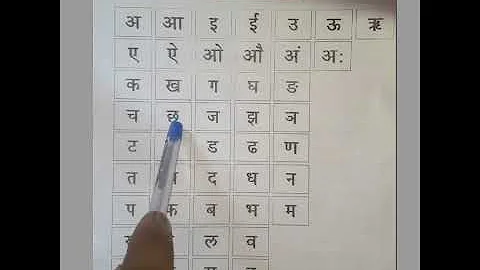 अ आ इ ई उ ऊ ऋ
ए ऐ ओ औ अं अः
क ख ग घ ङ
च छ ज झ ञ
ट ड ढ ण
त द ध न
प फ ब भ म
ल व